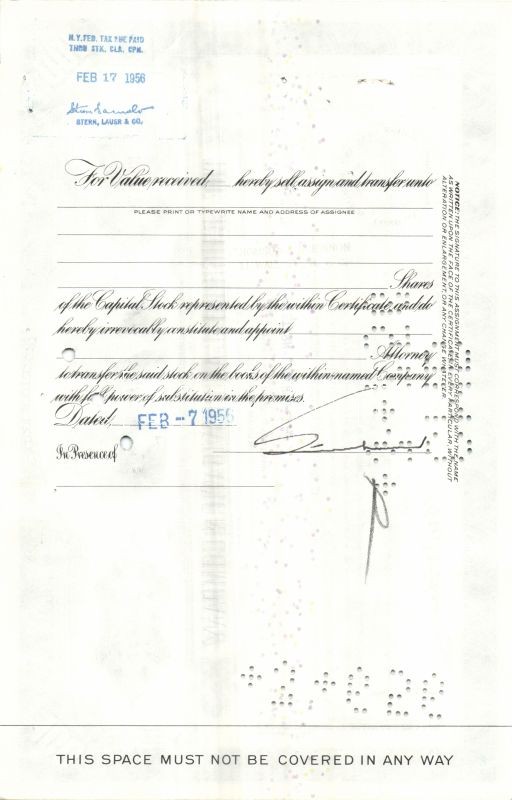 N.Y. FED. TAX PAID
THRU STK. CLR. CPN.
FEB 17 1956
STERN, LAUER & CO.
For Value received, hereby sell, assign and transfer unto
PLEASE PRINT OR TYPEWRITE NAME AND ADDRESS OF ASSIGNEE
Shares
of the Capital Stock represented by the within Certificate, and do
hereby irrevocably constitute and appoint
Attorney
to transfer the said stock on the books of the within-named Company
with power of substitution in the premises.
Dated, FEB -7 1956
In Presence of
NOTICE: THE SIGNATURE TO THIS ASSIGNMENT MUST CORRESPOND WITH THE NAME
AS WRITTEN UPON THE FACE OF THE CERTIFICATE IN EVERY PARTICULAR, WITHOUT
ALTERATION OR ENLARGEMENT, OR ANY CHANGE WHATEVER.
THIS SPACE MUST NOT BE COVERED IN ANY WAY